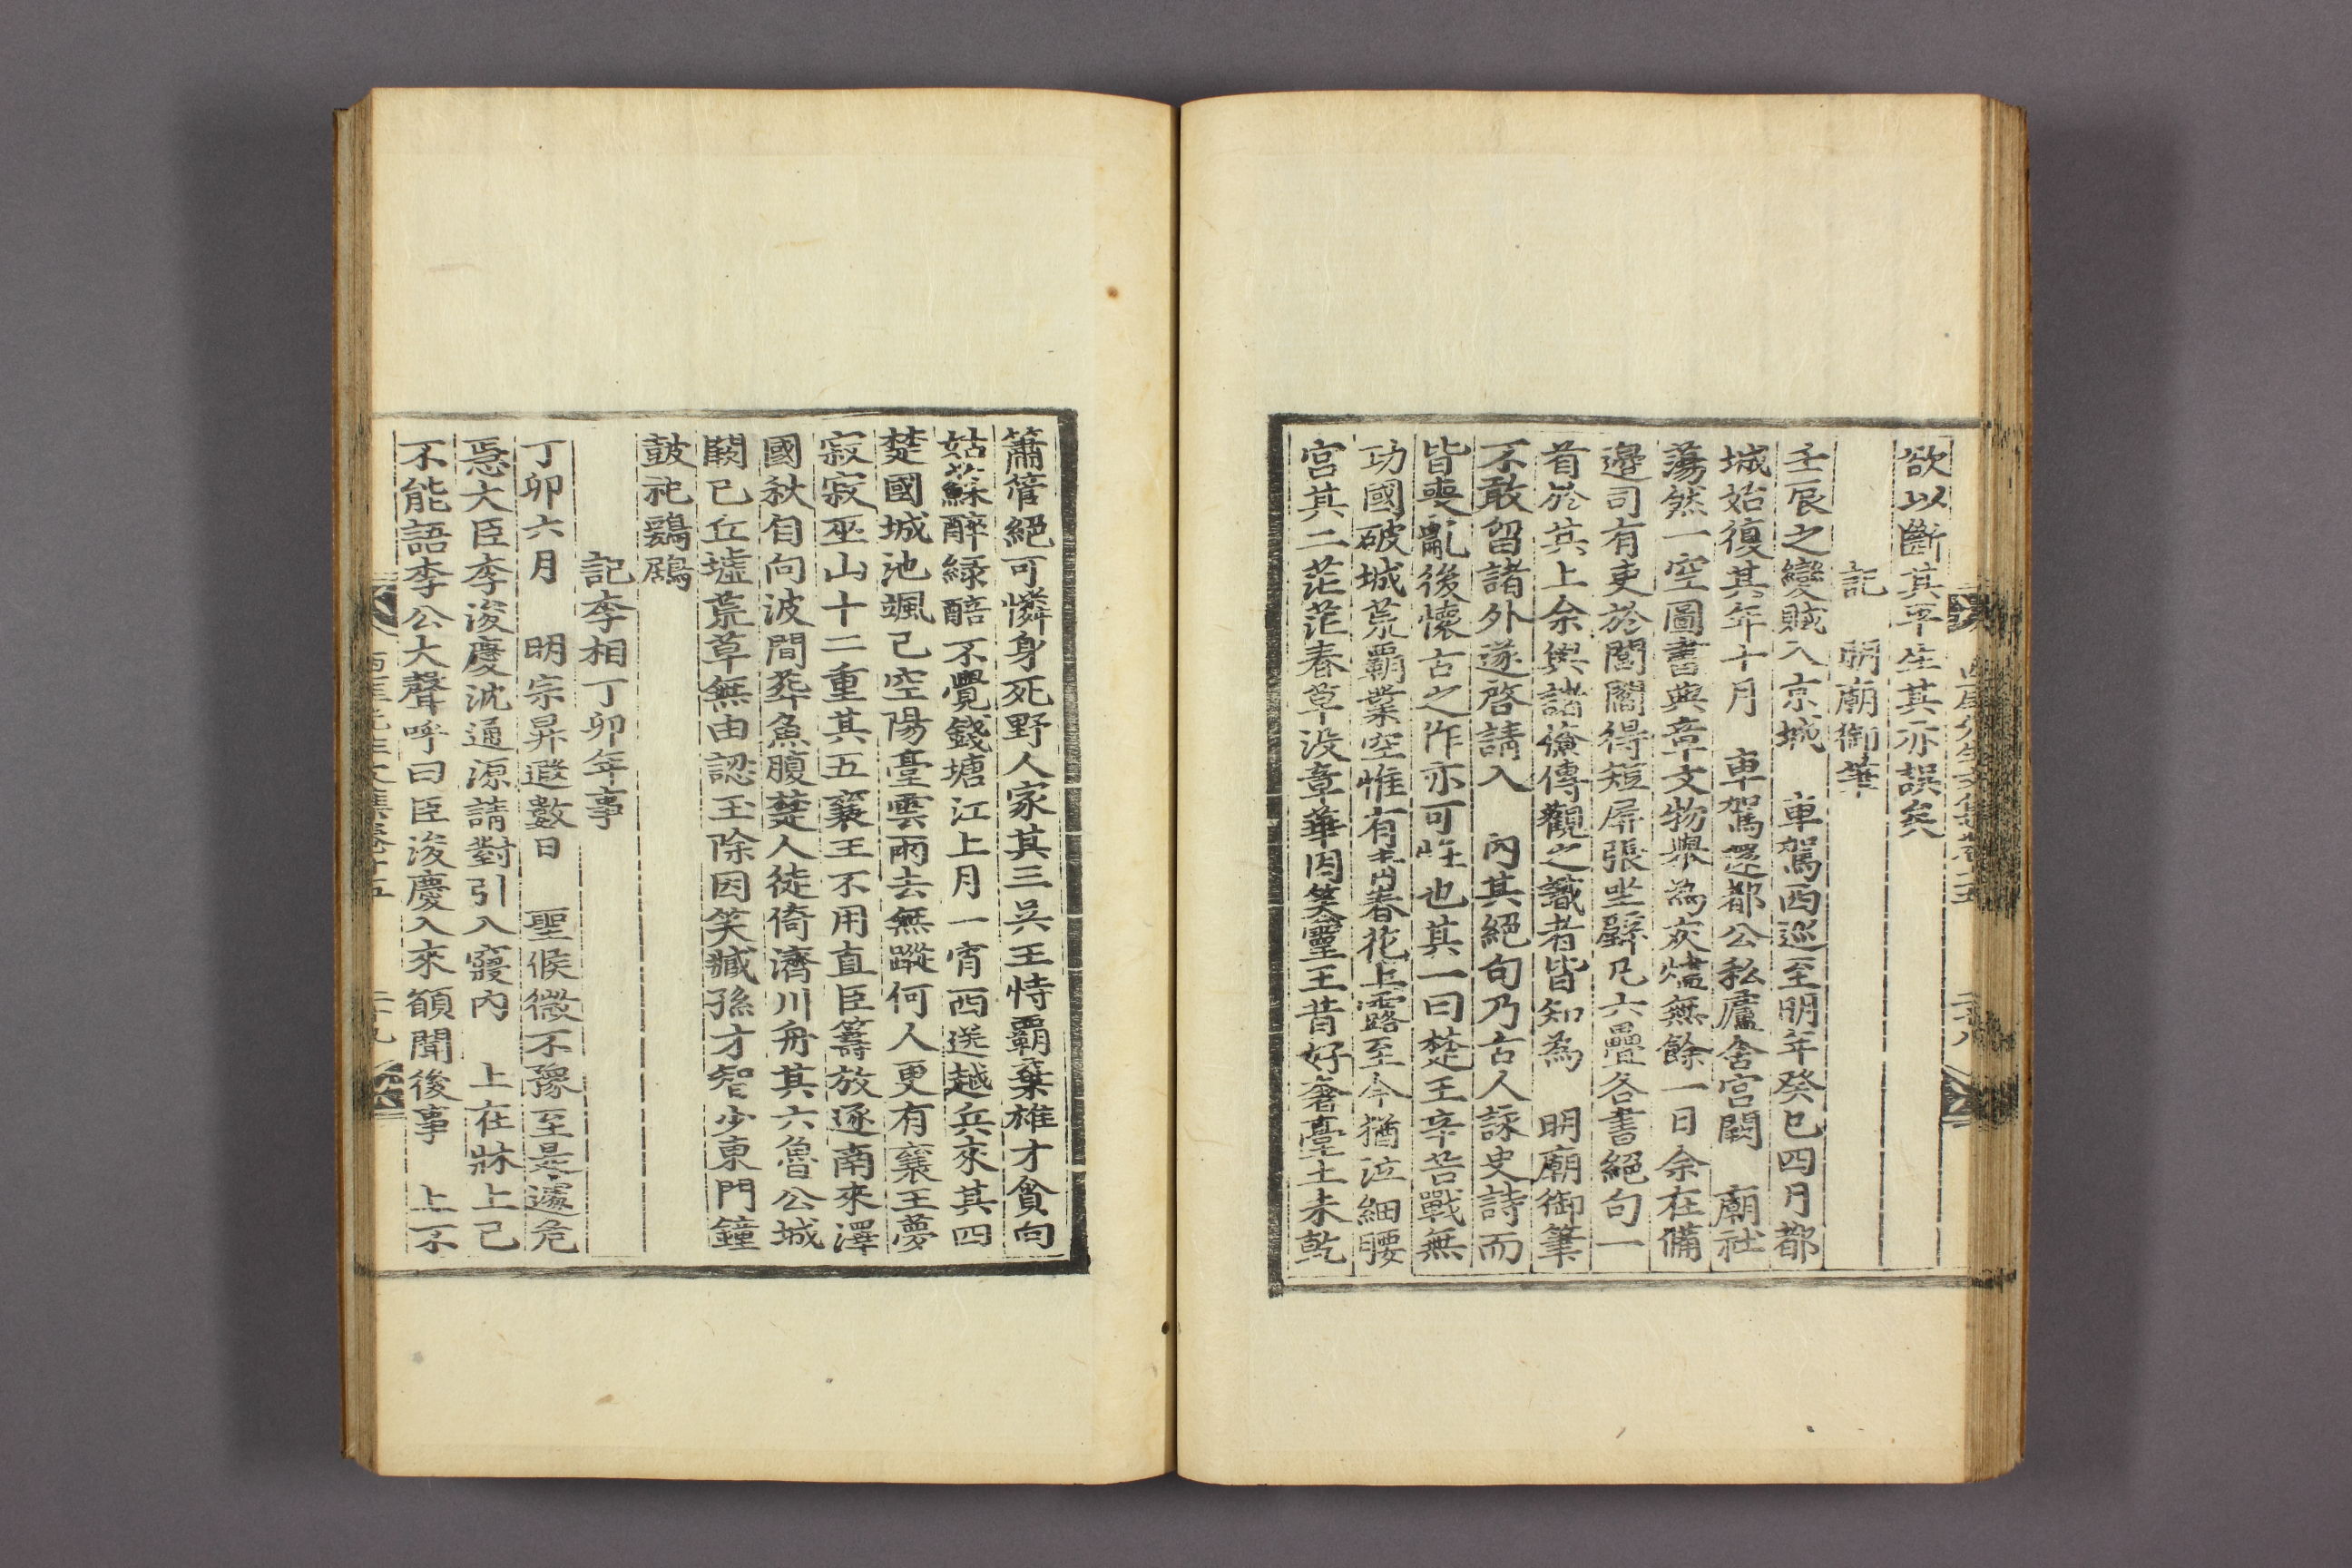 欲以斷其平生其亦誤矣
記　明廟御筆
壬辰之變賊入京城　車駕西巡至明年癸巳四月都
城始復其年十月　車駕還都公私廬舍宮闕　廟社
蕩然一空圖書典章文物擧爲灰燼無餘一日余在備
邊司有吏於閭閻得短屛張坐壁凡六疊各書絕句一
首於其上余與諸僚傳觀之識者皆知爲　明廟御筆
不敢留諸外遂啓請入　內其絕句乃古人詠史詩而
皆喪亂後懷古之作亦可怪也其一曰楚王辛苦戰無
功國破城荒霸業空惟有靑春花上露至今猶泣細腰
宮其二茫茫春草沒章華因笑靈王昔好奢臺土未乾
簫管絕可憐身死野人家其三吳王恃霸棄雄才貪向
姑蘇醉綠醅不覺錢塘江上月一宵西送越兵來其四
楚國城池颯已空陽臺雲雨去無蹤何人更有襄王夢
寂寂巫山十二重其五襄王不用直臣籌放逐南來澤
國秋自向波間葬魚腹楚人徒倚濟川舟其六魯公城
闕已丘墟荒草無由認玉除因笑臧孫才智少東門鐘
鼓祀鶢鶋
記李相丁卯年事
丁卯六月　明宗昇遐數日　聖候微不豫至是遽危
急大臣李浚慶沈通源請對引入寢內　上在牀上已
不能語李公大聲呼曰臣浚慶入來額聞後事　上不
西厓先生文集卷十五　二十九